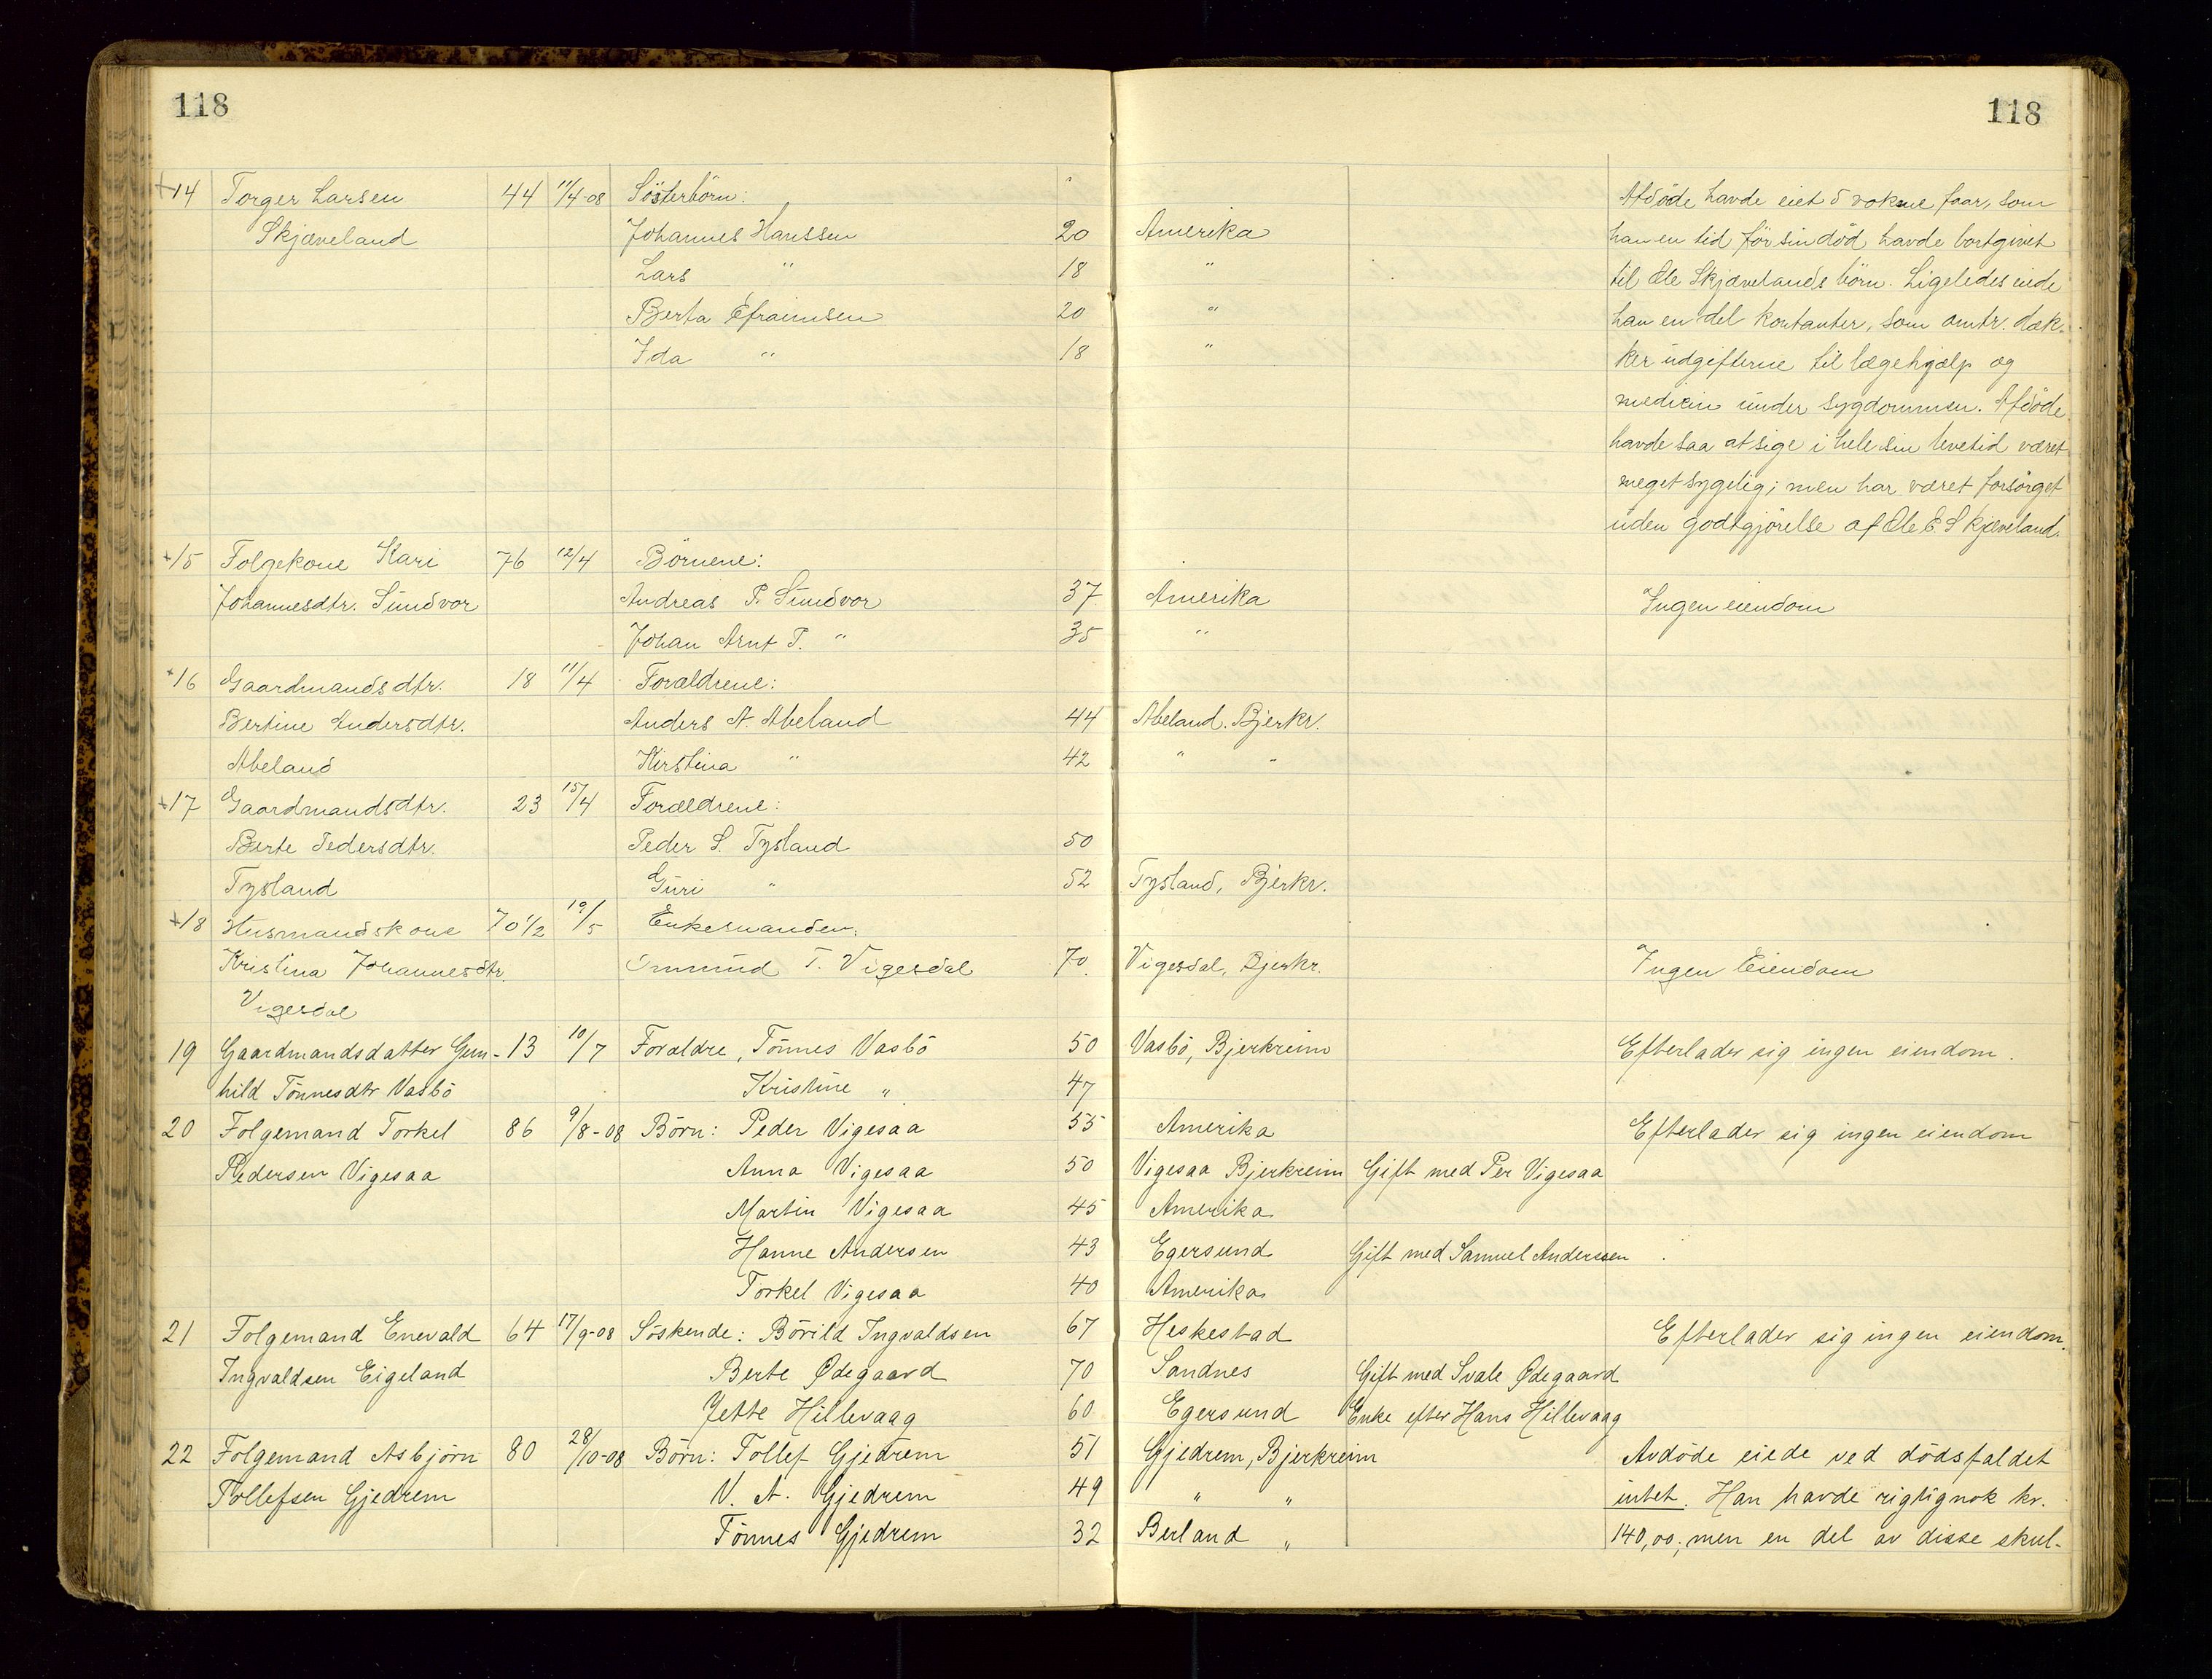 118
118
14 Torger Larsen 44 11/4-08 Sösterbörn: Afdöde havde eiet 5 voksne faar, som
Skjæveland Johannes Hanssen 20 Amerika han en tid för sin död havde bortgivet
Lars " 18 " til Ole Skjævelands börn. Ligeledes eiede
Berta Efraimsen 20 " han en del kontanter, som omtr. dæk-
Ida " 18 " ker udgifterne til lægehjælp og
medicin under sygdommen. Afdöde
havde saa at sige i hele sin levetid været
meget sygelig; men har været forsörget
uden godtgjörelse af Ole E. Skjæveland.
15 Folgekone Kari 76 12/4 Börnene:
Johannesdtr. Sundvor Andreas P. Sundvor 37 Amerika Ingen eiendom
Johan Arnt P. " 35 "
16 Gaardmandsdtr. 18 11/4 Forældrene:
Bertine Andersdtr. Anders A. Abeland 44 Abeland. Bjerkr.
Abeland Kirstina " 42 " "
17 Gaardmandsdtr. 23 15/4 Forældrene:
Berte Pedersdtr. Peder S. Tysland 50
Tysland Guri " 52 Tysland, Bjerkr.
18 Husmandskone 70 1/2 19/5 Enkemanden:
Kristina Johannesdtr. Ommund T. Vigesdal 70. Vigesdal, Bjerkr. Ingen Eiendom
Vigesdal
19 Gaardmandsdatter Gun- 13 10/7 Forældre, Tönnes Vasbö 50 Vasbö, Bjerkreim Efterlader sig ingen eiendom.
hild Tönnesdtr Vasbö Kristine " 47
20 Folgemand Torkel 86 9/8-08 Börn: Peder Vigesaa 55 Amerika Efterlader sig ingen eiendom
Pedersen Vigesaa Anna Vigesaa 50 Vigesaa Bjerkreim Gift med Per Vigesaa
Martin Vigesaa 45 Amerika
Hanne Andersen 43 Egersund Gift med Samuel Anderssen
Torkel Vigesaa 40 Amerika
21 Folgemand Enevald 64 17/9-08 Söskende: Börild Ingvaldsen 67 Heskestad Efterlader sig ingen eiendom.
Ingvaldsen Eigeland Berte Ødegaard 70 Sandnes Gift med Svale Ødegaard
Jette Hillevaag 60 Egersund Enke efter Hans Hillevaag
22 Folgemand Asbjörn 80 28/10-08 Börn: Tollef Gjedrem 51 Gjedrem, Bjerkreim Avdöde eiede ved dödsfaldet
Tollefsen Gjedrem V. A. Gjedrem 49 " " intet. Han havde rigtignok kr.
Tönnes Gjedrem 32 Berland " 140,00; men en del av disse skul-